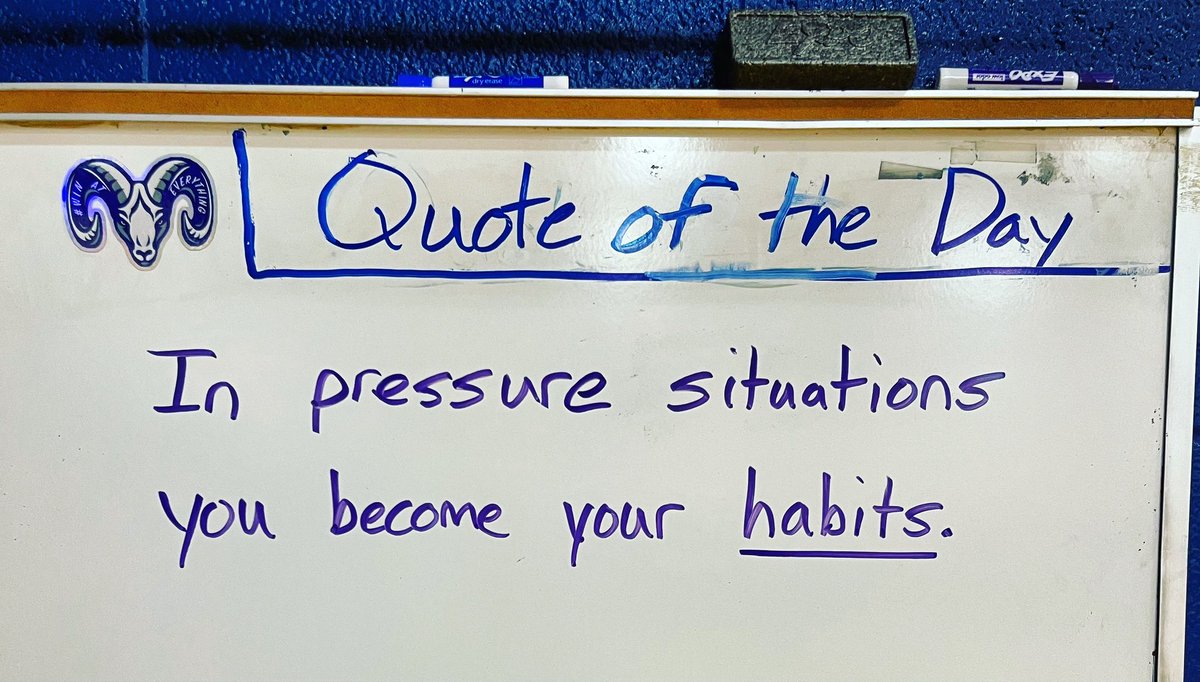 dry erase
EXPO
low odor
#WIN AT
EVERYTHING
Quote of the Day
In pressure situations
you become your habits.